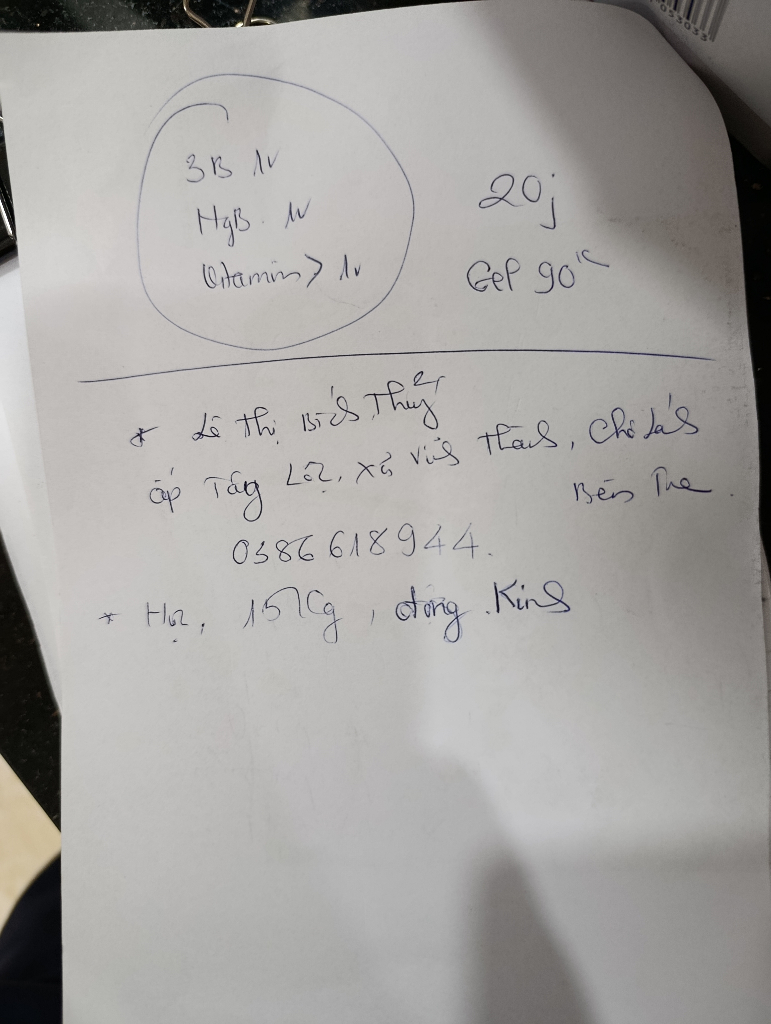 3B 1v
MgB 1v
Vitamin 1v
20j
Gef 90k
* Lê Thị Bích Thuỷ
ấp Tân Lộc, xã Vĩnh Thành, Chợ Lách
Bến Tre.
0386618944.
* Hạt, 15Kg, động Kinh